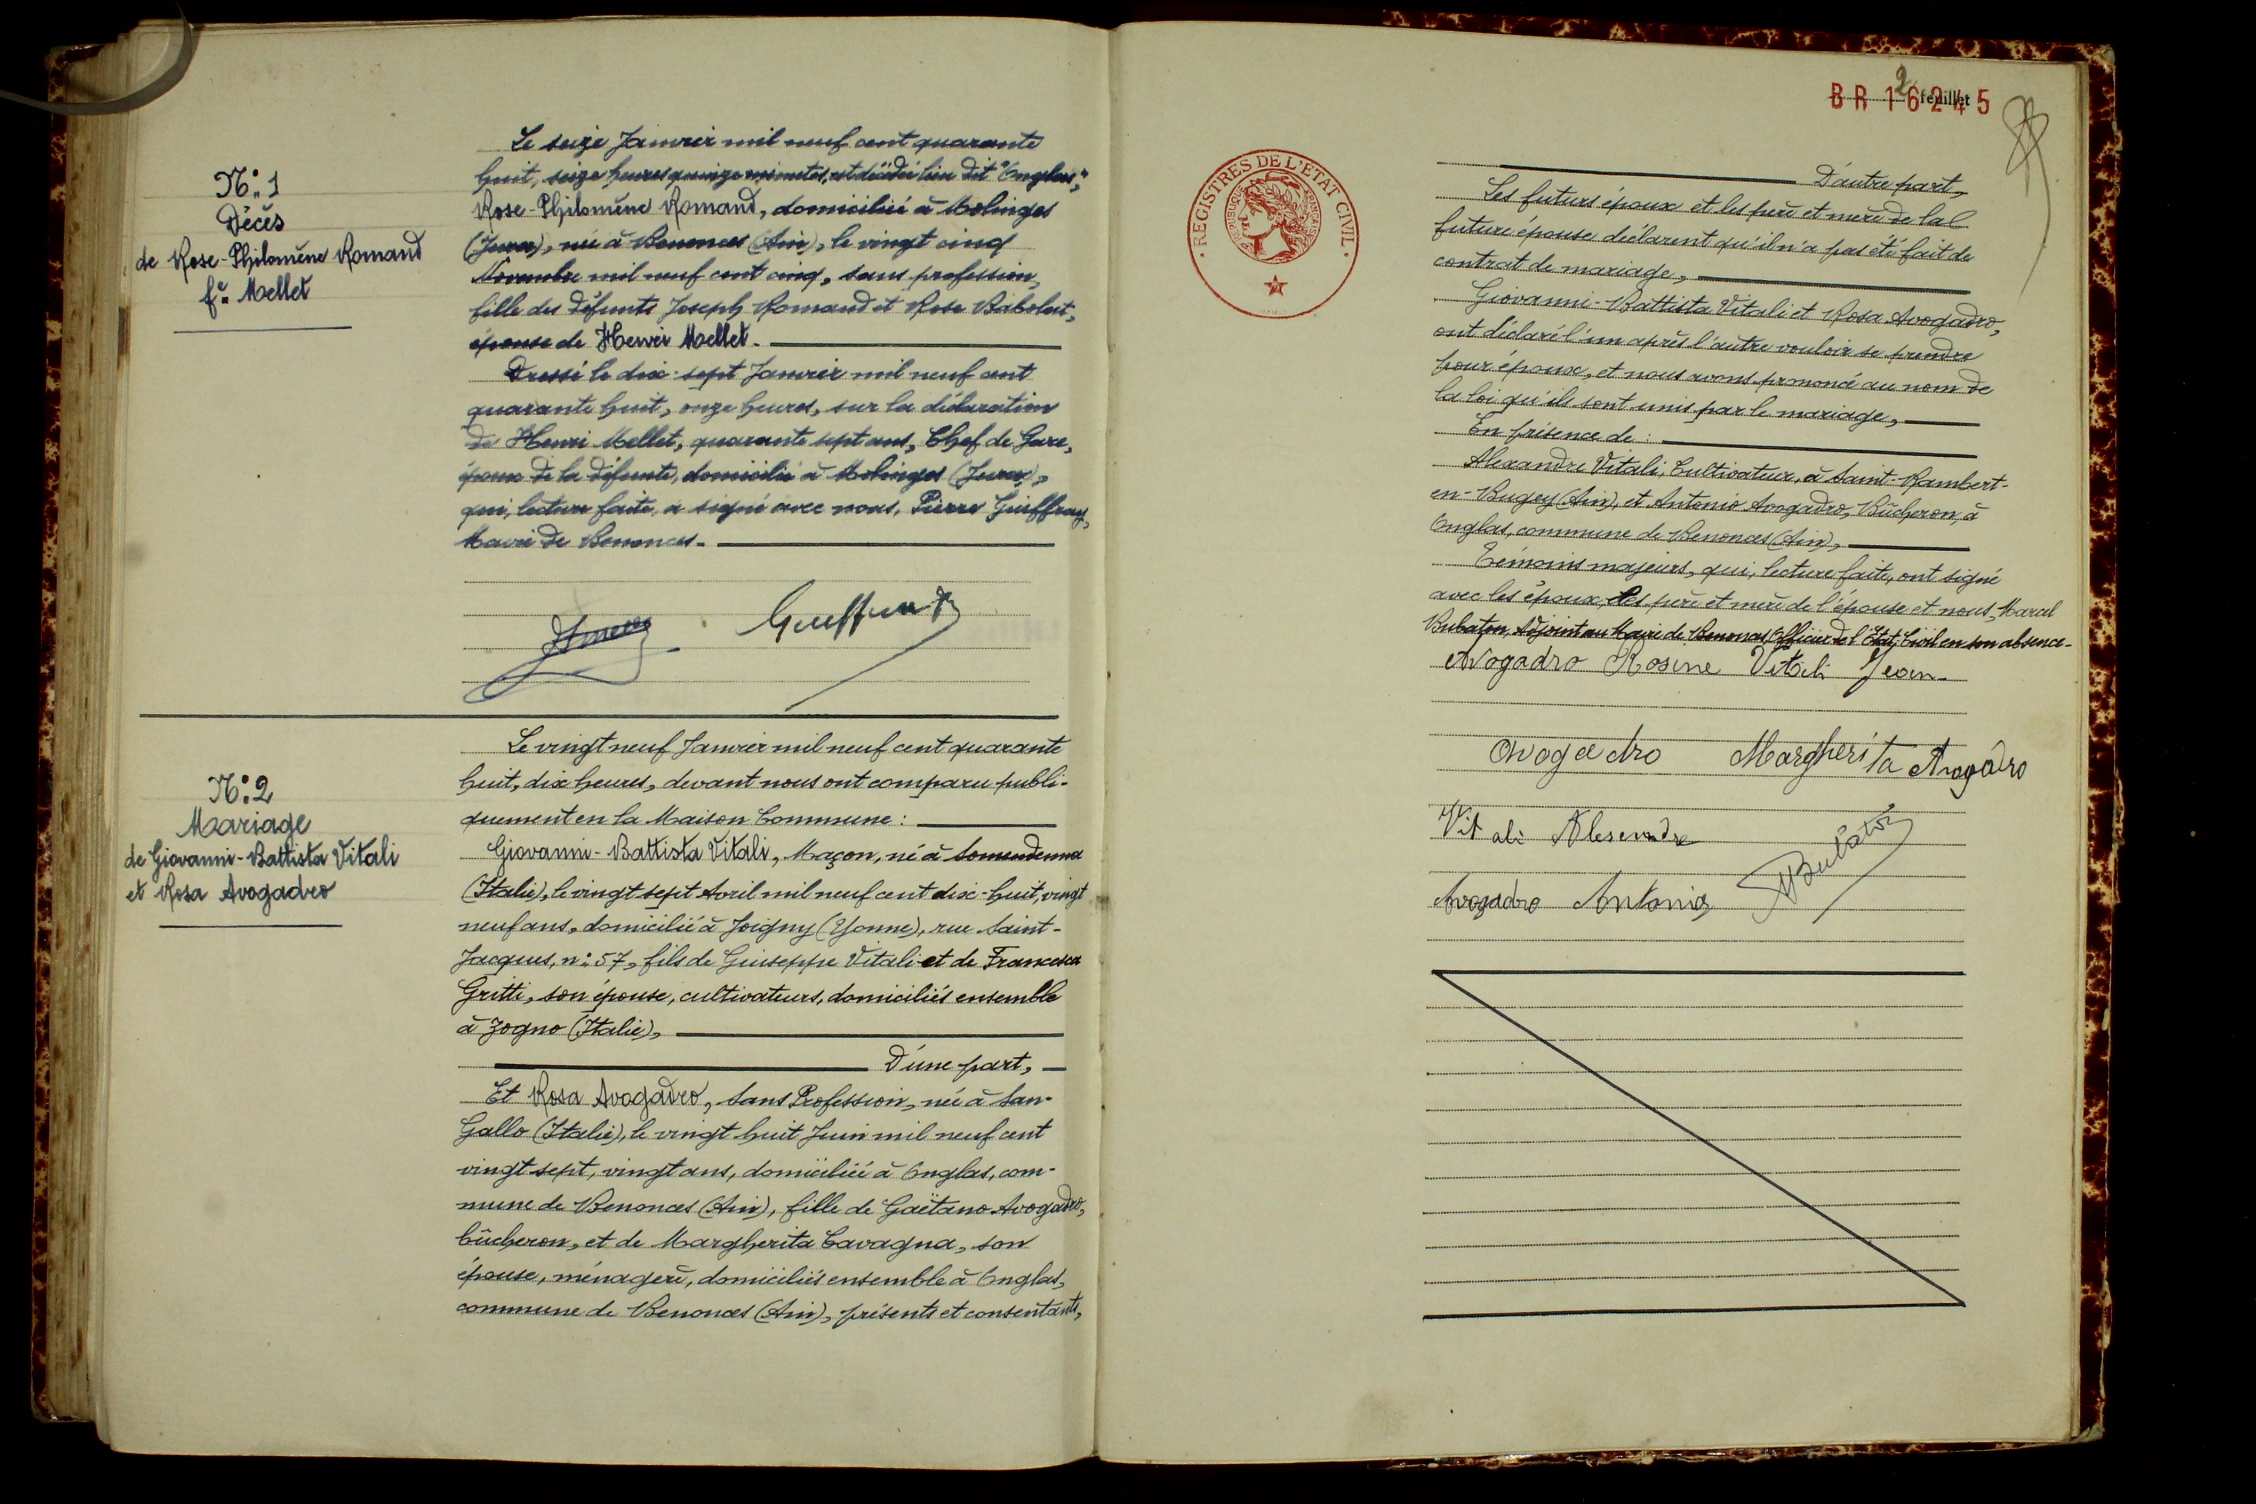 N° 1
Décès
de Rose-Philomène Romand
fe Mellet
Le seize Janvier mil neuf cent quarante
huit, seize heures quinze minutes, est décédée lieu dit "Onglas",
Rose-Philomène Romand, domiciliée à Molinges
(Jura), née à Benonces (Ain), le vingt cinq
Novembre mil neuf cent cinq, sans profession,
fille des défunts Joseph Romand et Rose Babolat,
épouse de Henri Mellet.
Dressé le dix-sept Janvier mil neuf cent
quarante huit, onze heures, sur la déclaration
de Henri Mellet, quarante sept ans, Chef de Gare,
époux de la défunte, domicilié à Molinges (Jura),
qui, lecture faite, a signé avec nous, Pierre Guiffray,
Maire de Benonces.
Guiffray
N° 2
Mariage
de Giovanni-Battista Vitali
et Rosa Avogadro
Le vingt neuf Janvier mil neuf cent quarante
huit, dix heures, devant nous ont comparu publi-
quement en la Maison Commune :
Giovanni-Battista Vitali, Maçon, né à Somendenna
(Italie), le vingt sept Avril mil neuf cent dix-huit, vingt
neuf ans, domicilié à Joigny (Yonne), rue Saint-
Jacques, n° 57, fils de Giuseppe Vitali et de Francesca
Gritti, son épouse, cultivateurs, domiciliés ensemble
à Zogno (Italie),
D'une part,
Et Rosa Avogadro, sans Profession, née à San-
Gallo (Italie), le vingt huit Juin mil neuf cent
vingt sept, vingt ans, domiciliée à Onglas, com-
mune de Benonces (Ain), fille de Gaëtano Avogadro,
bûcheron, et de Margherita Cavagna, son
épouse, ménagère, domiciliés ensemble à Onglas,
commune de Benonces (Ain), présents et consentants,
2 feuillet
BR 16245
REGISTRES DE L'ETAT CIVIL
REPUBLIQUE FRANÇAISE
D'autre part,
Les futurs époux et les père et mère de la
future épouse déclarent qu'il n'a pas été fait de
contrat de mariage,
Giovanni-Battista Vitali et Rosa Avogadro,
ont déclaré l'un après l'autre vouloir se prendre
pour époux, et nous avons prononcé au nom de
la loi qu'ils sont unis par le mariage,
En présence de :
Alexandre Vitali, Cultivateur, à Saint-Rambert-
en-Bugey (Ain), et Antonio Avogadro, Bûcheron, à
Onglas, commune de Benonces (Ain),
Témoins majeurs, qui, lecture faite, ont signé
avec les époux, les père et mère de l'épouse et nous, Marcel
Bubaton, Adjoint au Maire de Benonces, Officier de l'Etat-Civil en son absence.
Avogadro Rosine Vitali Jean
Avogadro Margherita Avogadro
Vitali Alesendre
Avogadro Antonio MBubaton